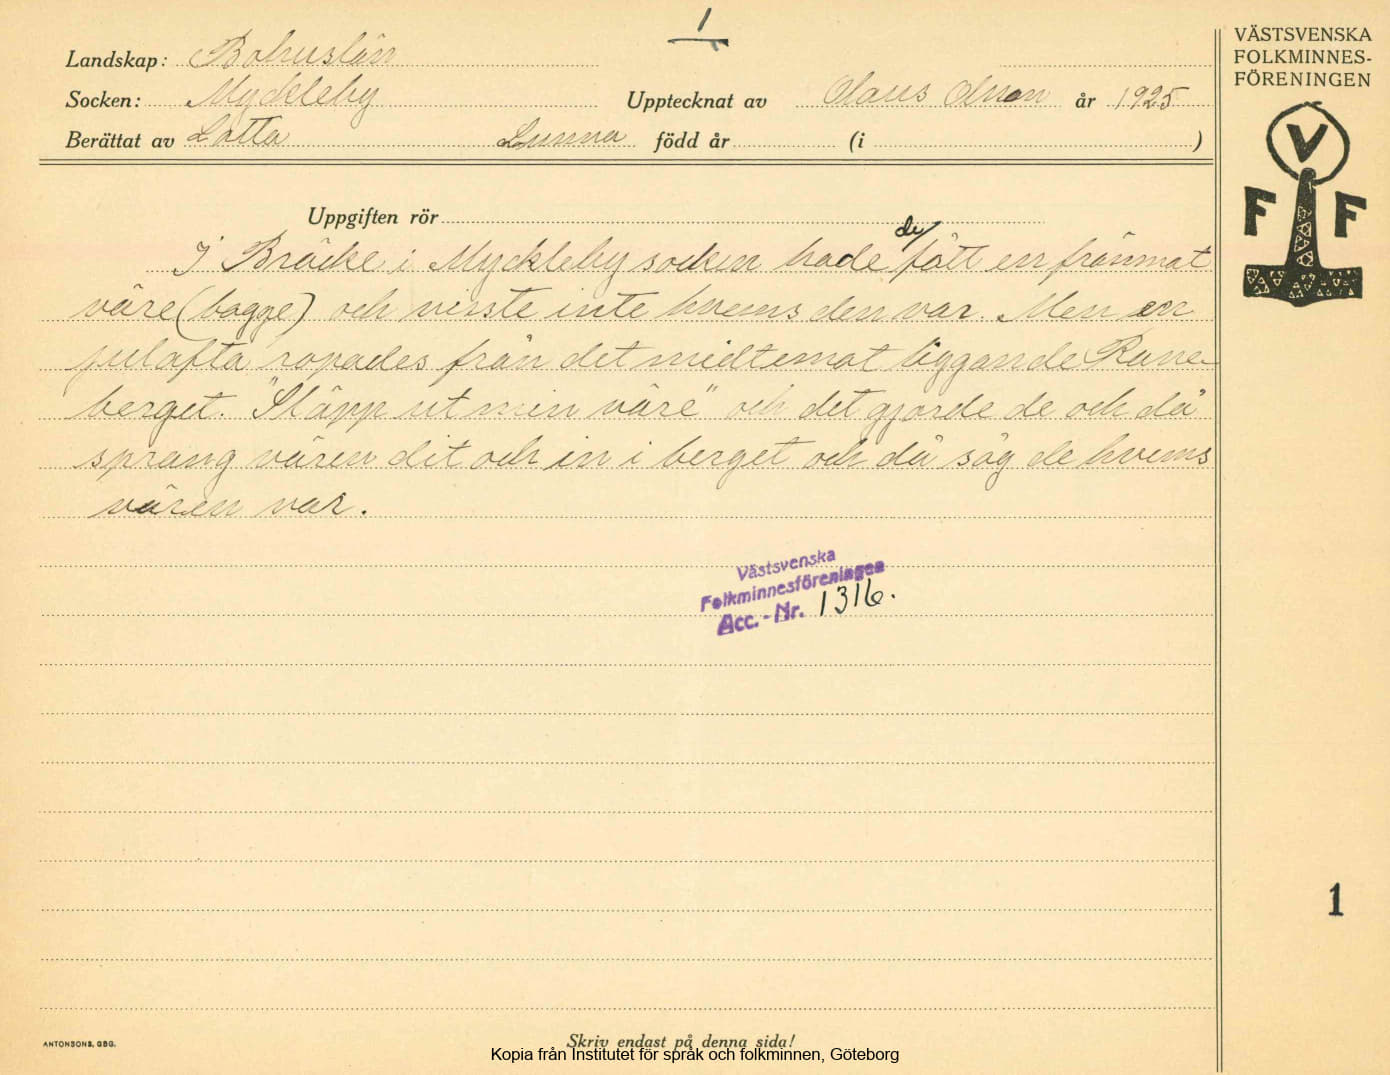 1
Landskap: Bohuslän
Socken: Myckleby
Upptecknat av Olaus Olsson år 1925
Berättat av Lotta Lunna född år (i )
VÄSTSVENSKA
FOLKMINNES-
FÖRENINGEN
V
F F
Uppgiften rör
de/
I Bräcke i Myckleby socken hade fått en främmat
väre (bagge) och visste inte hvems den var. Men en
julafta ropades från det midtemot liggande Rane-
berget. "Släpp ut min väre" och det gjorde de och då
sprang vären dit och in i berget och då såg de hvems
vären var.
Västsvenska
Folkminnesföreningen
Acc. - Nr. 1316.
1
ANTONSONS, GBG.
Skriv endast på denna sida!
Kopia från Institutet för språk och folkminnen, Göteborg